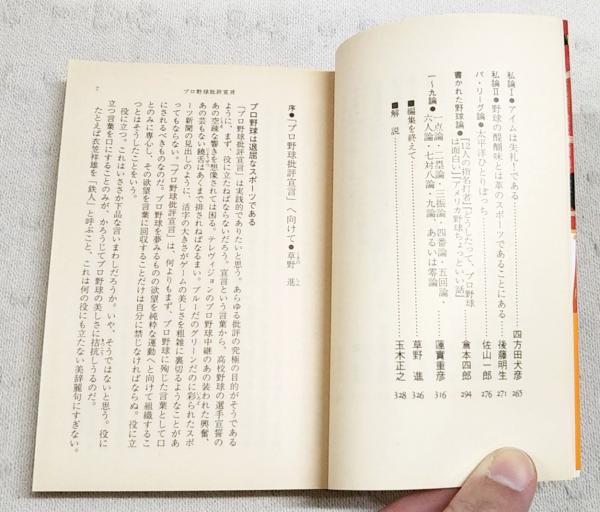 私論Ⅰ・アイムは失礼！である 四方田犬彦 265
私論Ⅱ・野球の醍醐味とは革のスポーツであることにある 後藤明生 271
パ・リーグ論・太平洋ひとりぼっち 佐山一郎 276
書かれた野球論・『12人の指名打者』『どうしたって、プロ野球は面白い』『アメリカ野球ちょっといい話』 倉本四郎 294
一〜九論・一点論・二塁論・三振論・四番論・五回論・六人論・七対八論・九論、あるいは零論 蓮實重彦 316
■編集を終えて 草野 進 326
■解 説 玉木正之 328
プロ野球批評宣言
7
序●「プロ野球批評宣言」へ向けて●草野 進
プロ野球は退屈なスポーツである
「プロ野球批評宣言」は実践的でありたいと思う。あらゆる批評の究極の目的がそうである
ように、まず、役に立たねばならないだろう。宣言という言葉から、高校野球の選手宣誓の
あの空疎な響きを想像されては困る。テレヴィジョンのプロ野球中継のあの装われた興奮、
あの芸もない饒舌はあくまで排されねばなるまい。ブルーだのグリーンだのに彩られたスポ
ーツ新聞の見出しのように、活字の大きさがゲームの美しさを粗雑に裏切るようなことがあ
ってもならない。「プロ野球批評宣言」は、何よりもまず、プロ野球に殉じた言葉として口
にされるべきものなのだ。プロ野球を夢みるものの欲望を純粋な運動へと向けて組織するこ
とのみに専心し、その欲望を言葉に回収することだけは自分に禁じなければならぬ。役に立
つとはそうしたことをいう。
役に立つ。これはいささか下品な言いまわしだろうか。いや、そうではないと思う。役に
立つ言葉を口にすることのみが、かろうじてプロ野球の美しさに拮抗しうるのだ。
たとえば衣笠祥雄を「鉄人」と呼ぶこと、これは何の役にも立たない美辞麗句にすぎない。